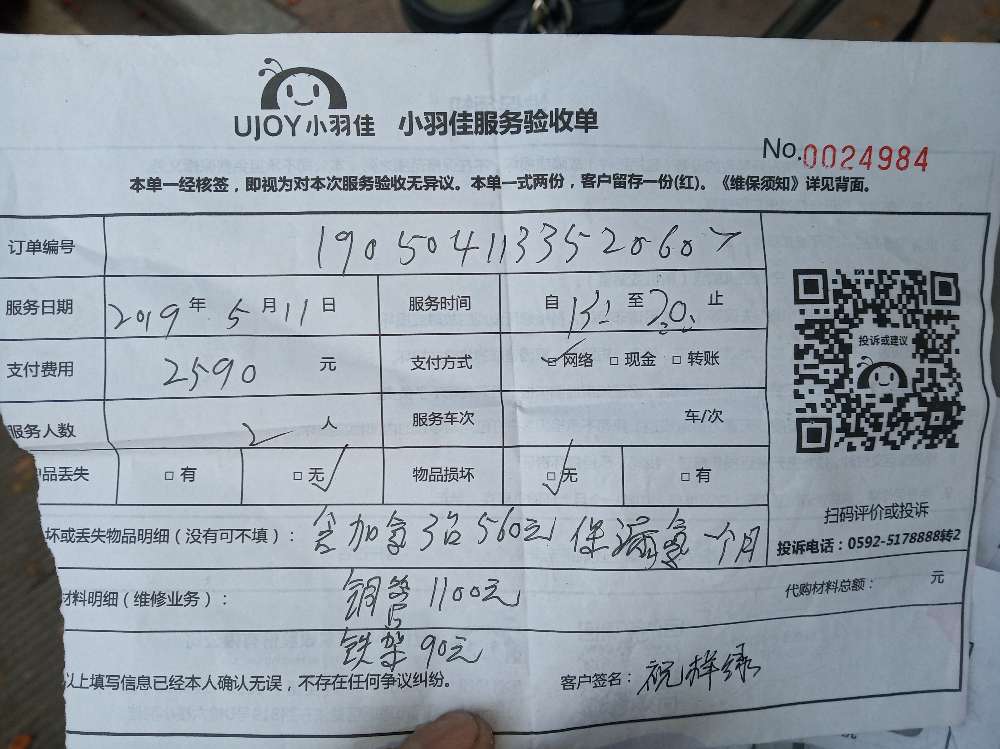 UJOY小羽佳 小羽佳服务验收单
No.0024984
本单一经核签，即视为对本次服务验收无异议。本单一式两份，客户留存一份(红)。《维保须知》详见背面。
订单编号 1905041133520607
服务日期 2019年5月11日 服务时间 自13:至20:止
支付费用 2590元 支付方式 ☑网络 □现金 □转账
投诉或建议
服务人数 2人 服务车次 车/次
品丢失 □有 □无√ 物品损坏 □无√ □有
扫码评价或投诉
坏或丢失物品明细（没有可不填）：含加氟3台560元保漏氟一个月
投诉电话：0592-5178888转2
材料明细（维修业务）：铜管 1100元 代购材料总额： 元
铁架90元
以上填写信息已经本人确认无误，不存在任何争议纠纷。 客户签名：祝样绿